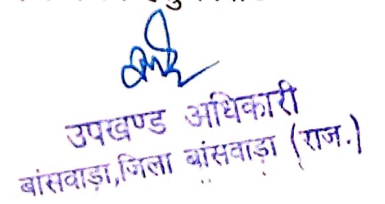 उपखण्ड अधिकारी
बांसवाड़ा,जिला बांसवाड़ा (राज.)